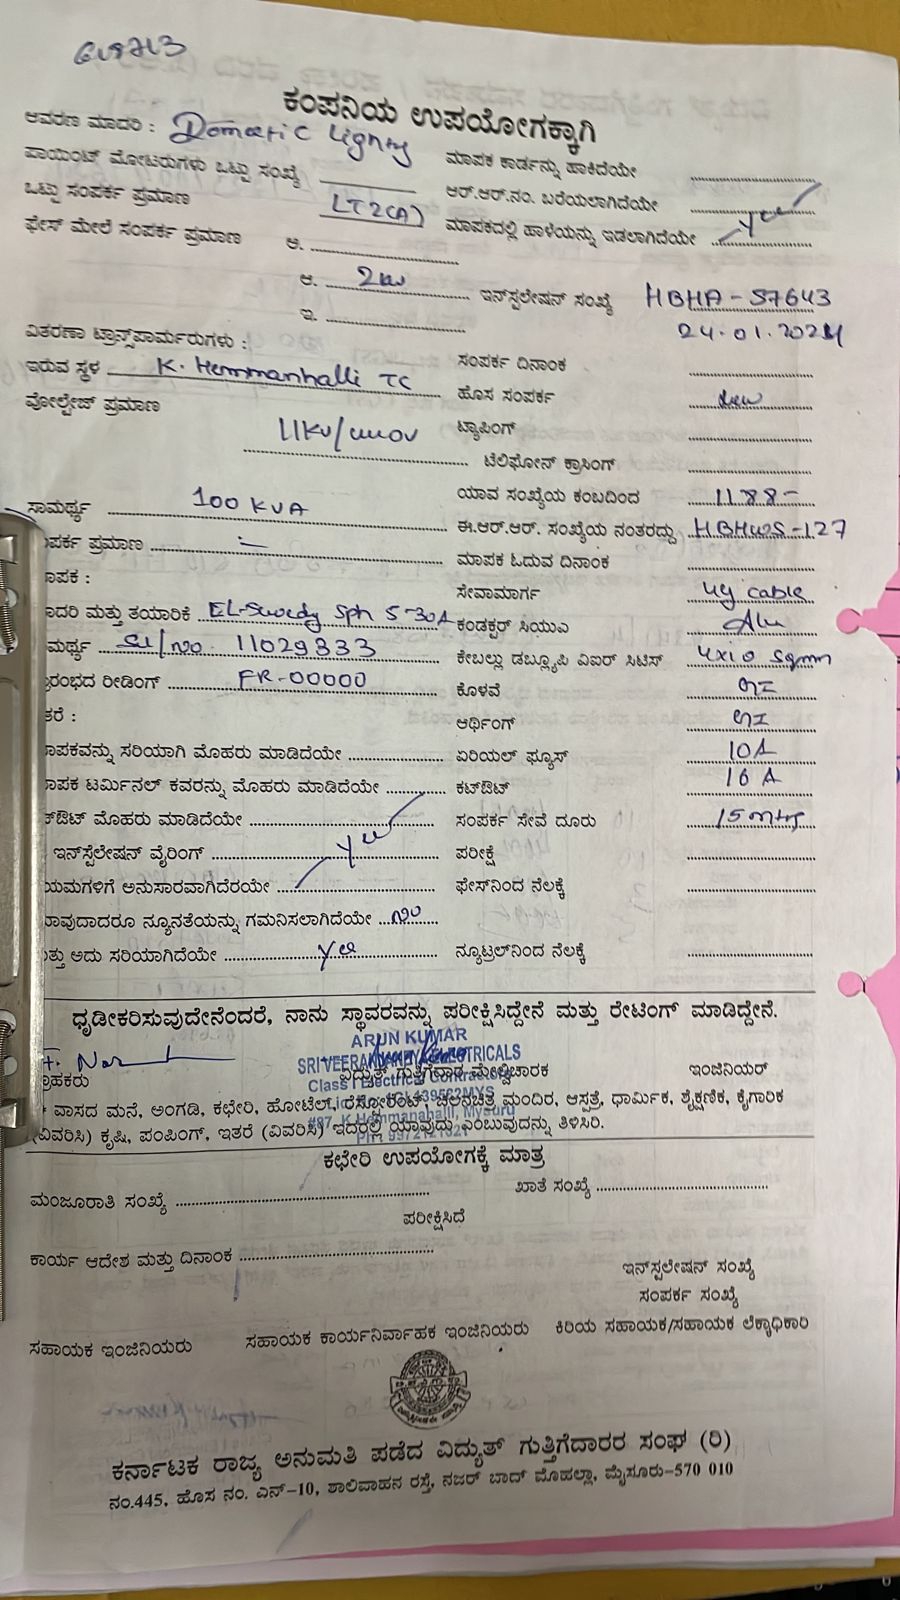 ಕಂಪನಿಯ ಉಪಯೋಗಕ್ಕಾಗಿ
ಆವರಣ ಮಾದರಿ : Domestic Lighting
ಪಾಯಿಂಟ್ ಮೋಟರುಗಳು ಒಟ್ಟು ಸಂಖ್ಯೆ
ಮಾಪಕ ಕಾರ್ಡನ್ನು ಹಾಕಿದೆಯೇ
ಒಟ್ಟು ಸಂಪರ್ಕ ಪ್ರಮಾಣ LT2(A)
ಆರ್.ಆರ್.ನಂ. ಬರೆಯಲಾಗಿದೆಯೇ
ಫೇಸ್ ಮೇಲೆ ಸಂಪರ್ಕ ಪ್ರಮಾಣ ಆ.
ಮಾಪಕದಲ್ಲಿ ಹಾಳೆಯನ್ನು ಇಡಲಾಗಿದೆಯೇ Yes
ಆ. 2kw
ಇನ್‌ಸ್ಟಲೇಷನ್ ಸಂಖ್ಯೆ HBHA - 57643
ಇ.
24.01.2024
ವಿತರಣಾ ಟ್ರಾನ್ಸ್‌ಪಾರ್ಮರುಗಳು :
ಸಂಪರ್ಕ ದಿನಾಂಕ
ಇರುವ ಸ್ಥಳ K. Hemmanhalli TC
ಹೊಸ ಸಂಪರ್ಕ New
ವೋಲ್ಟೇಜ್ ಪ್ರಮಾಣ 11KV/440V
ಟ್ಯಾಪಿಂಗ್
ಟೆಲಿಫೋನ್ ಕ್ರಾಸಿಂಗ್
ಸಾಮರ್ಥ್ಯ 100 KVA
ಯಾವ ಸಂಖ್ಯೆಯ ಕಂಬದಿಂದ 1188-
ಈ.ಆರ್.ಆರ್. ಸಂಖ್ಯೆಯ ನಂತರದ್ದು HBHWS-127
ಪರ್ಕ ಪ್ರಮಾಣ
ಮಾಪಕ ಓದುವ ದಿನಾಂಕ
ಾಪಕ :
ಸೇವಾಮಾರ್ಗ Ug cable
ಾದರಿ ಮತ್ತು ತಯಾರಿಕೆ EL-Swedy Sph 5-30A
ಕಂಡಕ್ಟರ್ ಸಿಯುಎ Alu
ಮರ್ಥ್ಯ Sl/no. 11029333
ಕೇಬಲ್ಲು ಡಬ್ಲ್ಯೂಪಿ ವಿಐರ್ ಸಿಟಿಸ್ 4x10 Sqmm
ರಂಭದ ರೀಡಿಂಗ್ FR-00000
ಕೊಳವೆ GI
ತರೆ :
ಆರ್ಥಿಂಗ್ GI
ಾಪಕವನ್ನು ಸರಿಯಾಗಿ ಮೊಹರು ಮಾಡಿದೆಯೇ
ಏರಿಯಲ್ ಫ್ಯೂಸ್ 10A
ಾಪಕ ಟರ್ಮಿನಲ್ ಕವರನ್ನು ಮೊಹರು ಮಾಡಿದೆಯೇ
ಕಟ್‌ಔಟ್ 16 A
ಕ್‌ಔಟ್ ಮೊಹರು ಮಾಡಿದೆಯೇ
ಸಂಪರ್ಕ ಸೇವೆ ದೂರು 15 mtrs
ಇನ್‌ಸ್ಟಲೇಷನ್ ವೈರಿಂಗ್ Yes
ಪರೀಕ್ಷೆ
ಯಮಗಳಿಗೆ ಅನುಸಾರವಾಗಿದೆರಯೇ
ಫೇಸ್‌ನಿಂದ ನೆಲಕ್ಕೆ
ರಾವುದಾದರೂ ನ್ಯೂನತೆಯನ್ನು ಗಮನಿಸಲಾಗಿದೆಯೇ No
ತ್ತು ಅದು ಸರಿಯಾಗಿದೆಯೇ Yes
ನ್ಯೂಟ್ರಲ್‌ನಿಂದ ನೆಲಕ್ಕೆ
ಧೃಡೀಕರಿಸುವುದೇನೆಂದರೆ, ನಾನು ಸ್ಥಾವರವನ್ನು ಪರೀಕ್ಷಿಸಿದ್ದೇನೆ ಮತ್ತು ರೇಟಿಂಗ್ ಮಾಡಿದ್ದೇನೆ.
ARUN KUMAR
ಗ್ರಾಹಕರು
ವಿದ್ಯುತ್ ಗುತ್ತಿಗೆದಾರ ಮೇಲ್ವಿಚಾರಕ
ಇಂಜಿನಿಯರ್
Class I Electrical Contractor
* ವಾಸದ ಮನೆ, ಅಂಗಡಿ, ಕಛೇರಿ, ಹೋಟೆಲ್, ರೆಸ್ಟೋರೆಂಟ್, ಚಲನಚಿತ್ರ ಮಂದಿರ, ಆಸ್ಪತ್ರೆ, ಧಾರ್ಮಿಕ, ಶೈಕ್ಷಣಿಕ, ಕೈಗಾರಿಕ
#87, K Hemmanahalli, Mysuru
(ವಿವರಿಸಿ) ಕೃಷಿ, ಪಂಪಿಂಗ್, ಇತರೆ (ವಿವರಿಸಿ) ಇದರಲ್ಲಿ ಯಾವುದು ಎಂಬುವುದನ್ನು ತಿಳಿಸಿರಿ.
ಕಛೇರಿ ಉಪಯೋಗಕ್ಕೆ ಮಾತ್ರ
ಮಂಜೂರಾತಿ ಸಂಖ್ಯೆ
ಖಾತೆ ಸಂಖ್ಯೆ
ಪರೀಕ್ಷಿಸಿದೆ
ಕಾರ್ಯ ಆದೇಶ ಮತ್ತು ದಿನಾಂಕ
ಇನ್‌ಸ್ಟಲೇಷನ್ ಸಂಖ್ಯೆ
ಸಂಪರ್ಕ ಸಂಖ್ಯೆ
ಸಹಾಯಕ ಇಂಜಿನಿಯರು
ಸಹಾಯಕ ಕಾರ್ಯನಿರ್ವಾಹಕ ಇಂಜಿನಿಯರು
ಕಿರಿಯ ಸಹಾಯಕ/ಸಹಾಯಕ ಲೆಕ್ಕಾಧಿಕಾರಿ
ಕರ್ನಾಟಕ ರಾಜ್ಯ ಅನುಮತಿ ಪಡೆದ ವಿದ್ಯುತ್ ಗುತ್ತಿಗೆದಾರರ ಸಂಘ (ರಿ)
ನಂ.445, ಹೊಸ ನಂ. ಎನ್-10, ಶಾಲಿವಾಹನ ರಸ್ತೆ, ನಜರ್ ಬಾದ್ ಮೊಹಲ್ಲಾ, ಮೈಸೂರು-570 010